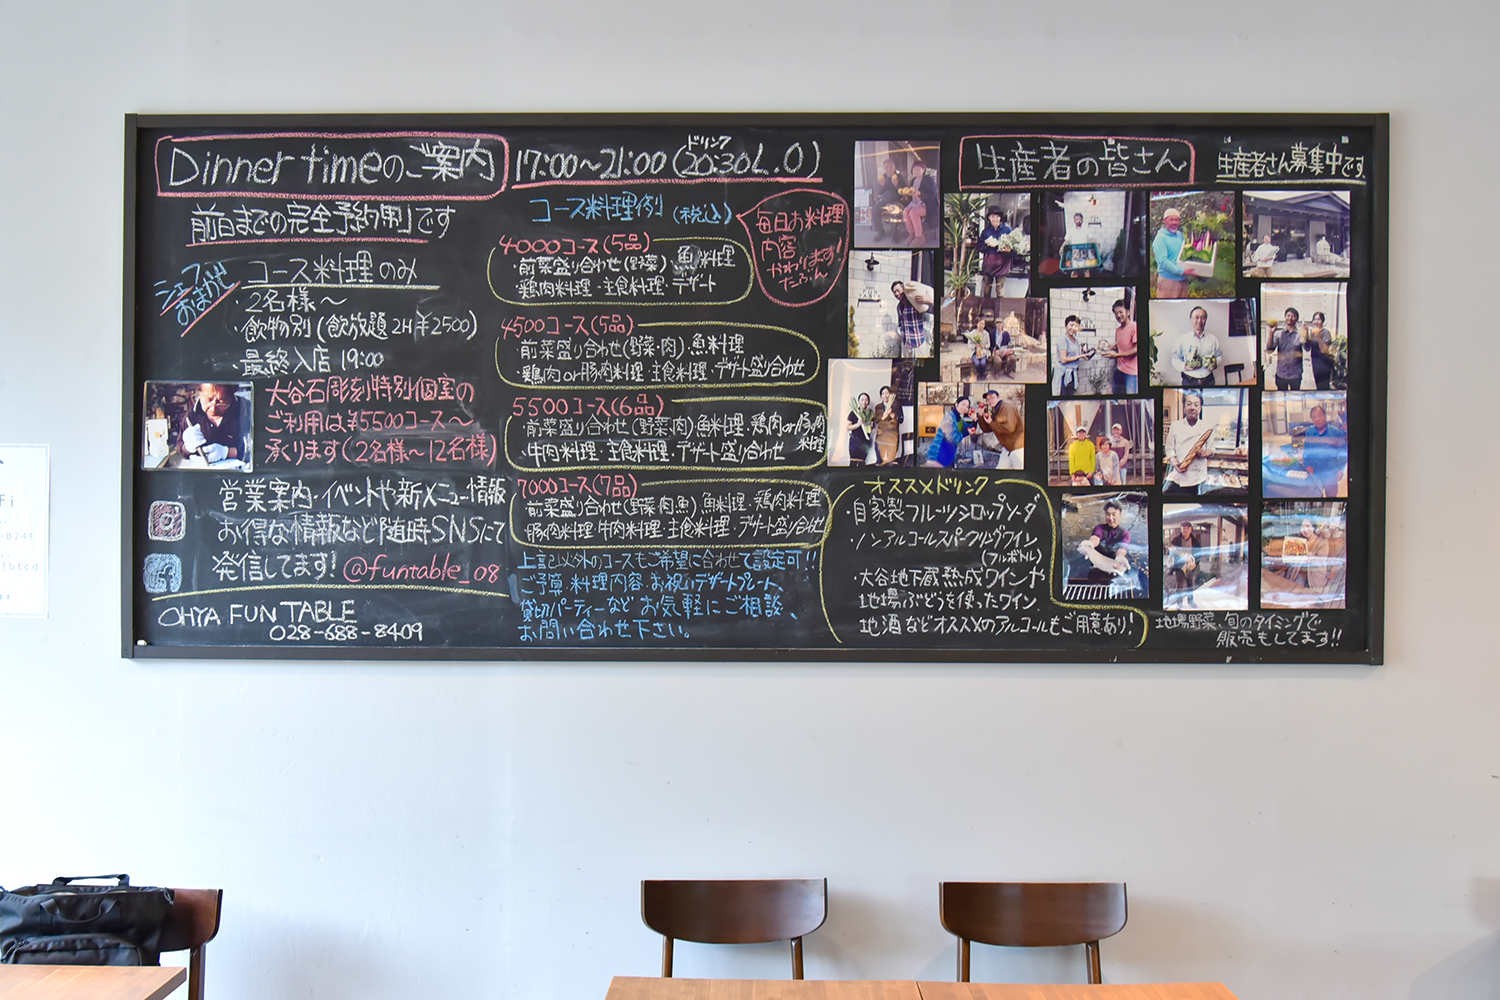 Dinner timeのご案内
17:00〜21:00(20:30L.O)
ドリンク
前日までの完全予約制です
シェフおまかせ
コース料理のみ
・2名様〜
・飲物別(飲放題2H¥2500)
・最終入店 19:00
大谷石彫刻特別個室の
ご利用は¥5500コース〜
承ります(2名様〜12名様)
営業案内・イベントや新メニュー情報
お得な情報など随時SNSにて
発信してます!@funtable_08
OHYA FUN TABLE
028-688-8409
コース料理例(税込)
毎日お料理
内容
かわります!
たぶん
4000コース(5品)
・前菜盛り合わせ(野菜)・魚料理
・鶏肉料理・主食料理・デザート
4500コース(5品)
・前菜盛り合わせ(野菜・肉)・魚料理
・鶏肉or豚肉料理・主食料理・デザート盛り合わせ
5500コース(6品)
・前菜盛り合わせ(野菜・肉)・魚料理・鶏肉or豚肉料理
・牛肉料理・主食料理・デザート盛り合わせ
7000コース(7品)
・前菜盛り合わせ(野菜・肉・魚)・魚料理・鶏肉料理
・豚肉料理・牛肉料理・主食料理・デザート盛り合わせ
上記以外のコースもご希望に合わせて設定可!!
ご予算・料理内容・お祝いデザートプレート、
貸切パーティーなど お気軽にご相談、
お問い合わせ下さい。
オススメドリンク
・自家製フルーツシロップソーダ
・ノンアルコールスパークリングワイン
(フルボトル)
・大谷地下蔵熟成ワインや
地場ぶどうを使ったワイン
地酒などオススメのアルコールもご用意あり!
生産者の皆さん
生産者さん募集中です
地場野菜、旬のタイミングで
販売もしてます!!
Fi
-8248
fbtcd